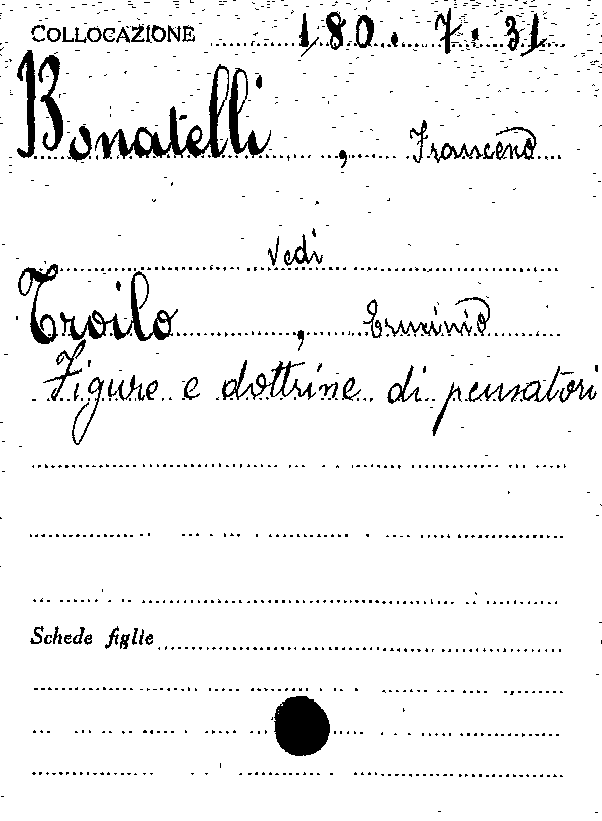 COLLOCAZIONE 180. 7. 31
Bonatelli, Francesco
Vedi
Troilo, Erminio
Figure e dottrine di pensatori
Schede figlie